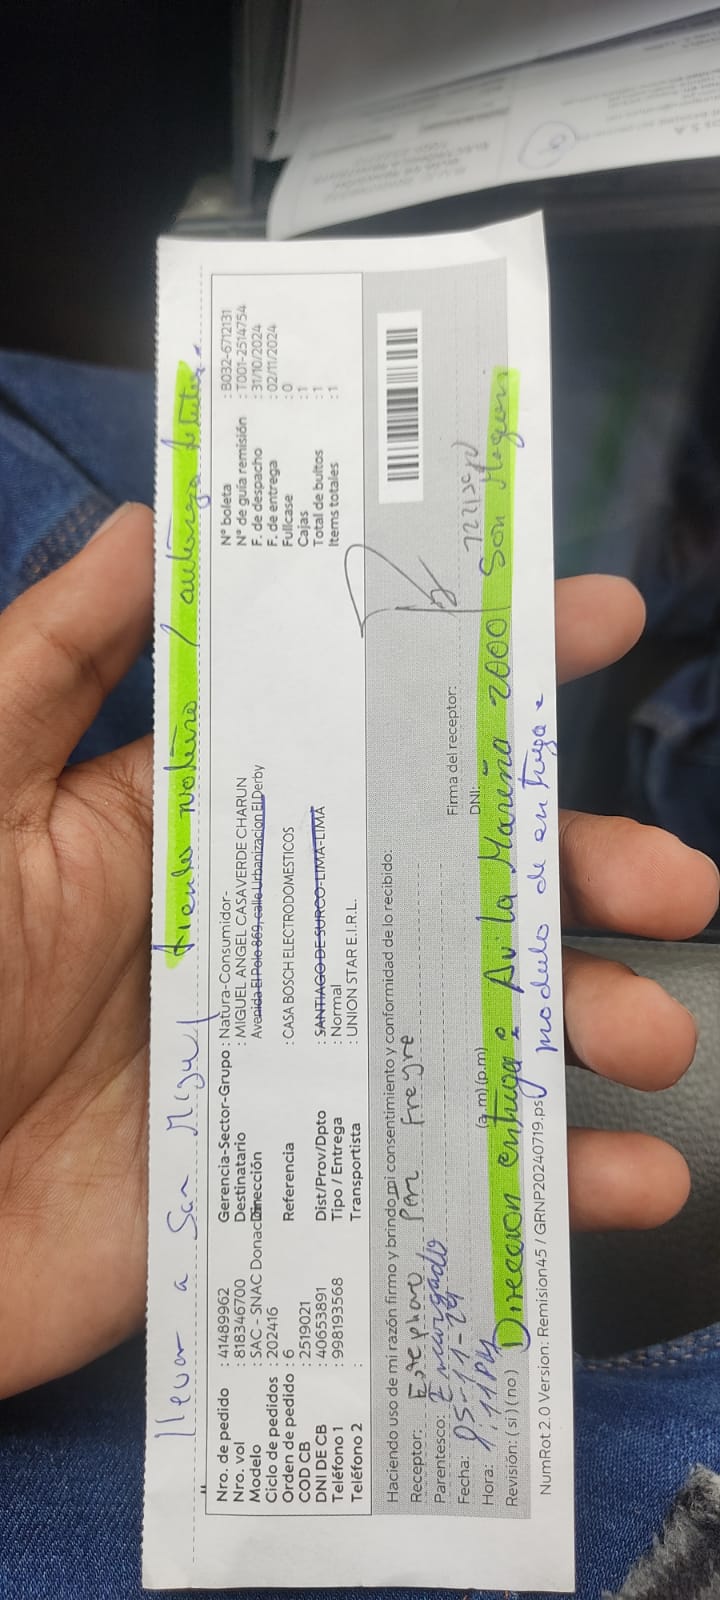 llevar a San Miguel tiendo motivo / autoriza
Nro. de pedido : 41489962
Nro. vol : 818346700
Modelo : SAC - SNAC Donac
Ciclo de pedidos : 202416
Orden de pedido : 6
COD CB : 2519021
DNI DE CB : 40653891
Teléfono 1 : 998193568
Teléfono 2 :
Gerencia-Sector-Grupo : Natura-Consumidor-
Destinatario : MIGUEL ANGEL CASAVERDE CHARUN
Dirección Avenida El Polo 869, calle Urbanizacion El Derby
Referencia : CASA BOSCH ELECTRODOMESTICOS
Dist/Prov/Dpto : SANTIAGO DE SURCO-LIMA-LIMA
Tipo / Entrega : Normal
Transportista : UNION STAR E.I.R.L.
N° boleta : B032-6712131
N° de guía remisión : T001-2514754
F. de despacho : 31/10/2024
F. de entrega : 02/11/2024
Fullcase : 0
Cajas : 1
Total de bultos : 1
Items totales : 1
Haciendo uso de mi razón firmo y brindo mi consentimiento y conformidad de lo recibido:
Receptor: Estephano Freyre
Parentesco: Encargado
Fecha: 05-11-24
Hora: 1:11 PM (a.m) (p.m)
Revisión: ( si ) ( no )
Firma del receptor:
DNI:
Direccion entrega : Av la Mareña 2000 / San Miguel
modulo de entrega
NumRot 2.0 Version: Remision45 / GRNP20240719.ps